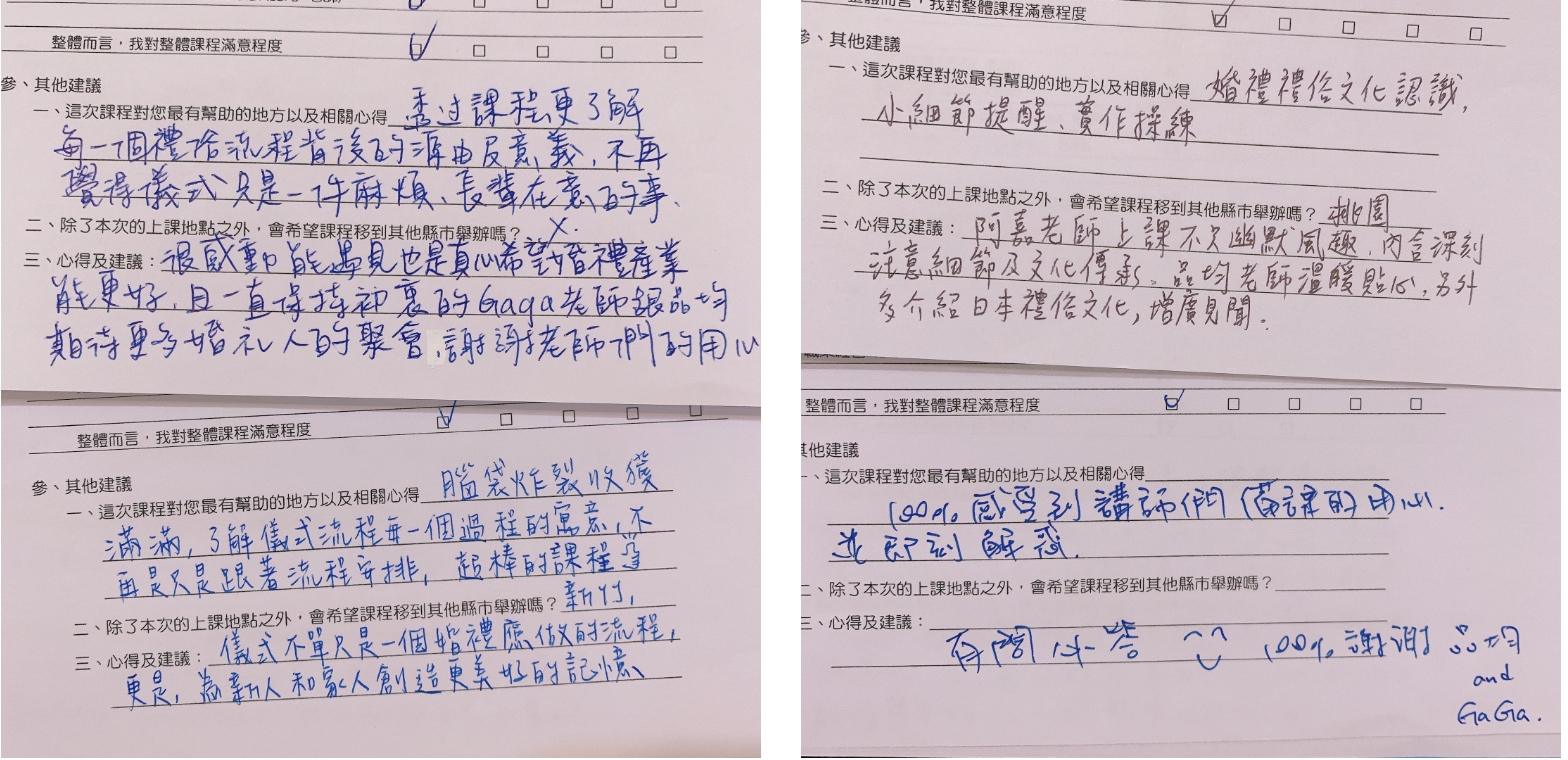 整體而言，我對整體課程滿意程度
參、其他建議
一、這次課程對您最有幫助的地方以及相關心得 透过課程更了解
每一個禮俗流程背後的源由及意義，不再
覺得儀式只是一件麻煩、長輩在意的事.
二、除了本次的上課地點之外，會希望課程移到其他縣市舉辦嗎？ X.
三、心得及建議：很感動能遇見也是真心希望婚禮產業
能更好，且一直保持初衷的Gaga老師跟品均
期待更多婚礼人的聚會，謝謝老師們的用心
整體而言，我對整體課程滿意程度
參、其他建議
一、這次課程對您最有幫助的地方以及相關心得 腦袋炸裂收獲
滿滿，了解儀式流程每一個過程的寓意，不
再是只是跟著流程安排，超棒的課程
二、除了本次的上課地點之外，會希望課程移到其他縣市舉辦嗎？新竹，
三、心得及建議：儀式不單只是一個婚禮應做的流程，
更是，為新人和家人創造更美好的記憶
整體而言，我對整體課程滿意程度
參、其他建議
一、這次課程對您最有幫助的地方以及相關心得 婚禮禮俗文化認識，
小細節提醒、實作操練
二、除了本次的上課地點之外，會希望課程移到其他縣市舉辦嗎？ 桃園
三、心得及建議：阿嘉老師上課不失幽默風趣，內含深刻
注意細節及文化傳承、品均老師溫暖貼心，另外
多介紹日本禮俗文化，增廣見聞.
整體而言，我對整體課程滿意程度
其他建議
一、這次課程對您最有幫助的地方以及相關心得
100% 感受到講師們備課的用心.
並即刻解惑.
二、除了本次的上課地點之外，會希望課程移到其他縣市舉辦嗎？
三、心得及建議：
有問必答 100% 謝謝 品均
and
GaGa.